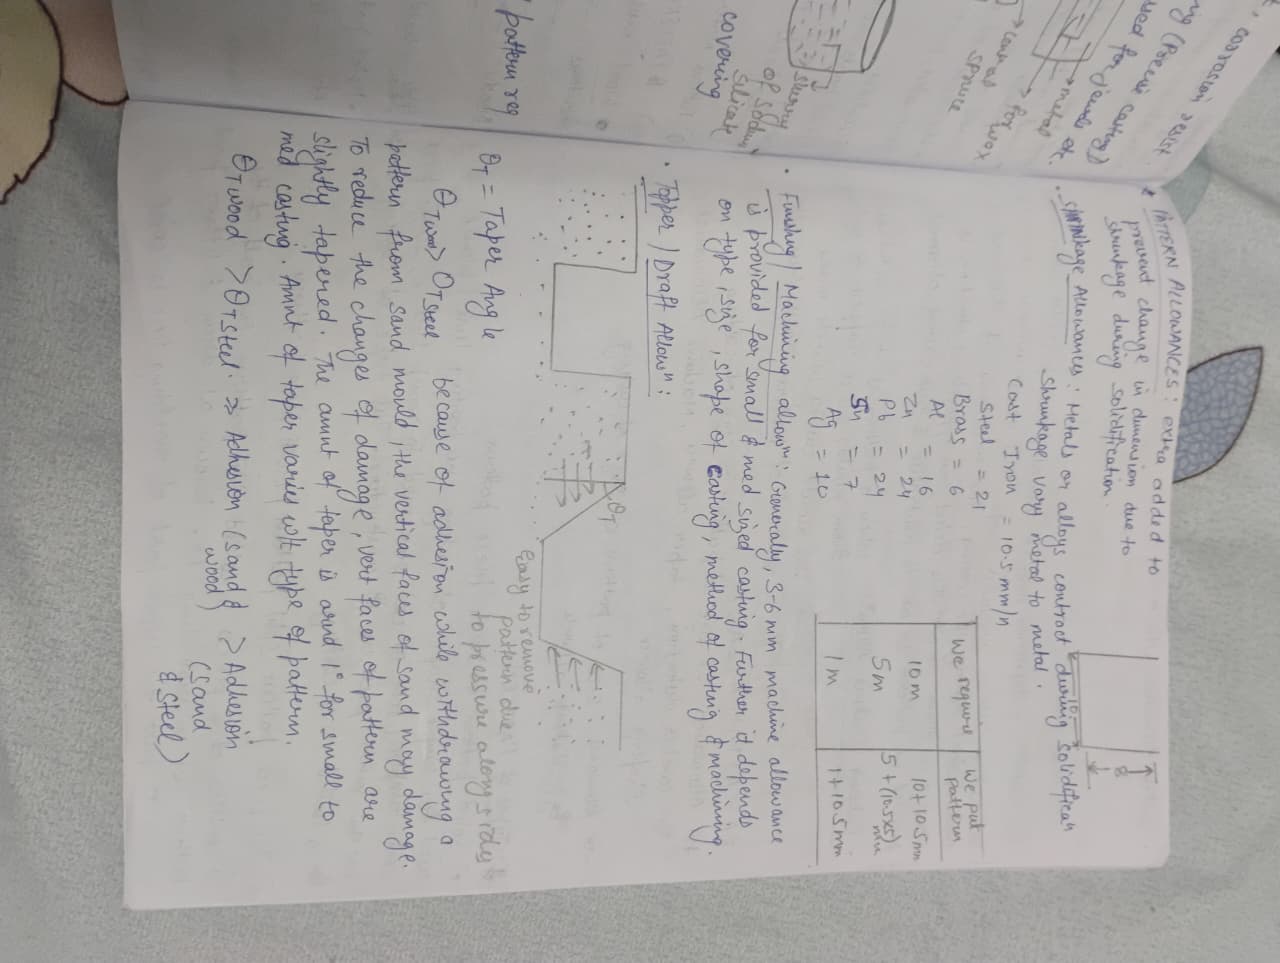 t, corrosion resist
ng (Precise casting)
used for
→ metal
→ for wax
→ can as
sprue
slurry
of sodium
silicate
covering
pattern req
* PATTERN ALLOWANCES: extra added to
prevent change in dimension due to
shrinkage during solidification.
10
8
• Shrinkage Allowances: Metals or alloys contract during solidifican
Shrinkage vary metal to metal.
Cast Iron = 10.5 mm/m
Steel = 21
Brass = 6
Al = 16
Zn = 24
Pb = 24
Sn = 7
Ag = 10
We require | we put pattern
10m | 10+10.5mm
5m | 5+(10.5x5) mm
1m | 1+10.5mm
• Finishing/Machining allown: Generally, 3-6 mm machine allowance
is provided for small & med sized casting. Further it depends
on type, size, shape of casting, method of casting & machining.
• Tapper/Draft Allown:
θT
Easy to remove
pattern due
to pressure along sides
θT = Taper Angle
θTwood > θTsteel because of adhesion while withdrawing a
pattern from sand mould, the vertical faces of sand may damage.
To reduce the changes of damage, vert faces of pattern are
slightly tapered. The amnt of taper is arnd 1° for small to
med casting. Amnt of taper varies wrt type of pattern.
θTwood > θTsteel. ⇒ Adhesion (sand & wood) > Adhesion
(sand
& steel)